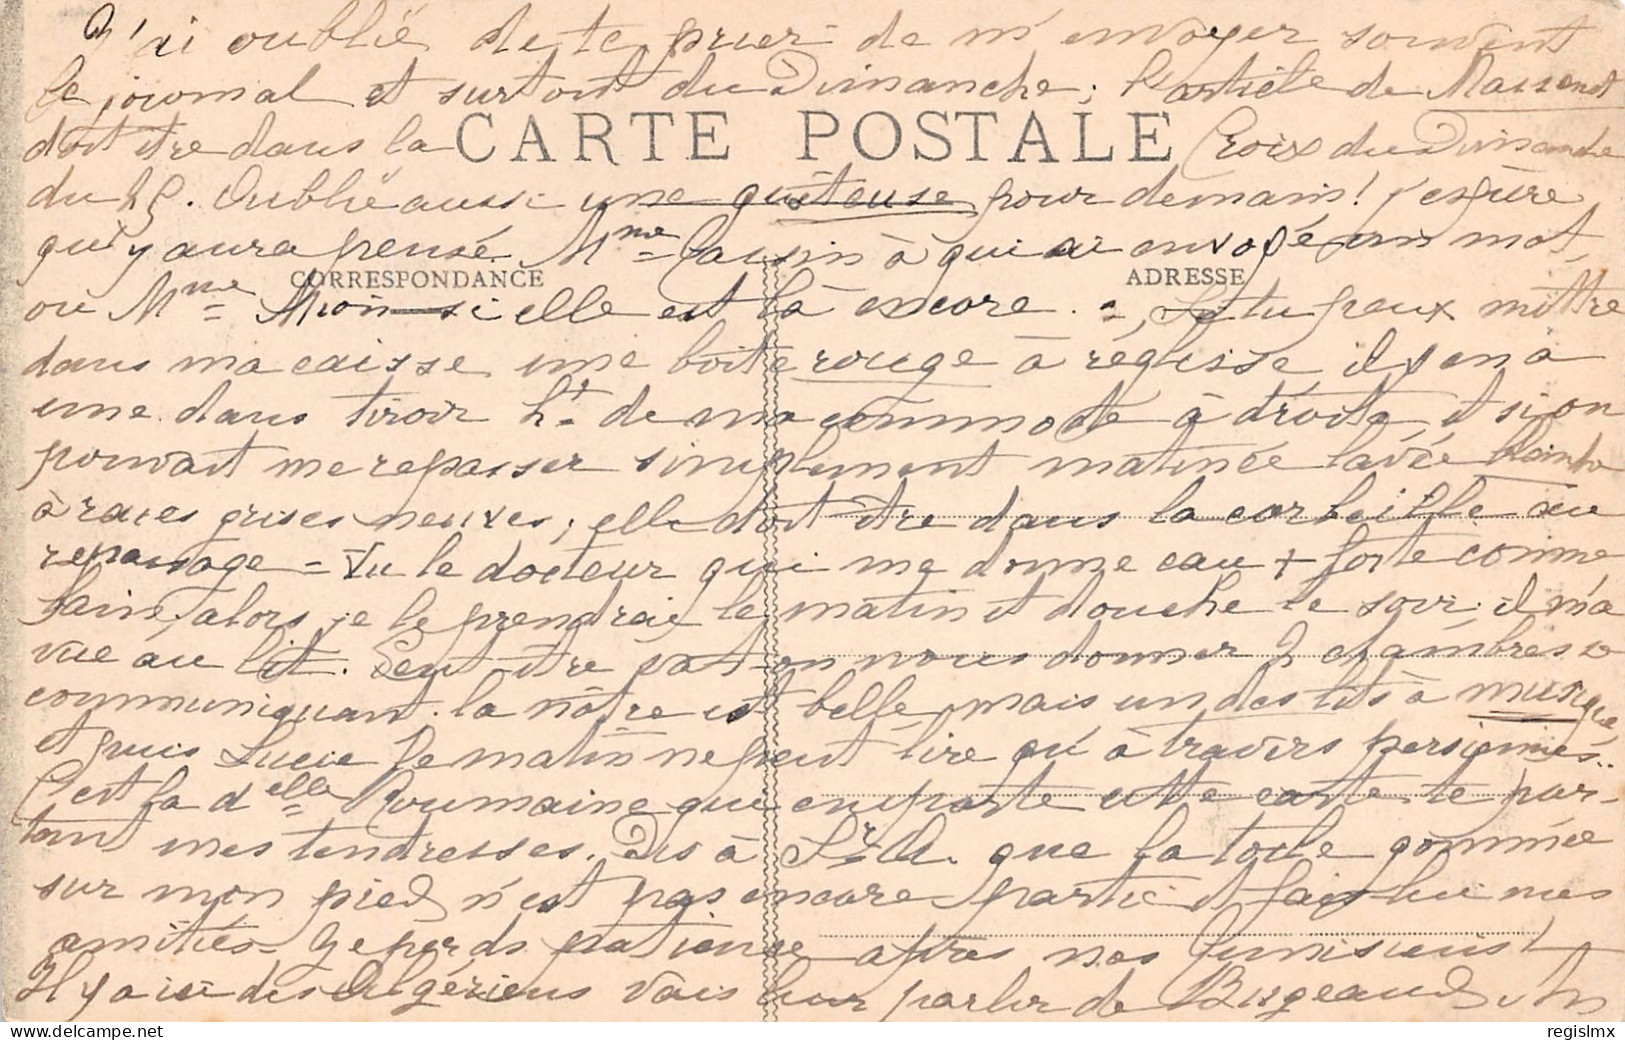 J'ai oublié de te prier de m'envoyer souvent
le journal et surtout du Dimanche; l'article de Massenet
doit être dans la Croix du Dimanche
CARTE POSTALE
du 25. Oublié aussi une quêteuse pour demain! j'espère
qu'y aura pensé. Mme Cassin à qui ai envoyé un mot,
CORRESPONDANCE
ADRESSE
ou Mme Mion si elle est là encore. = Si tu peux mettre
dans ma caisse une boîte rouge à réglisse, il y en a
une dans tiroir ht de ma commode à droite, et si on
pouvait me repasser simplement matinée lavée
à raies grises neuves; elle doit être dans la corbeille au
repassage = Vu le docteur qui me donne eau + forte comme
, alors je le prendrai le matin et douche le soir; il m'a
vue au lit. Peut-être va-t-on nous donner 2 chambres
communiquant. la nôtre est belle, mais un des lits à musique
et puis Lucie le matin ne peut lire qu'à travers persiennes..
C'est la delle Roumaine qui emporte cette carte te por-
tant mes tendresses. Dis à Sr A. que la toile gommée
sur mon pied n'est pas encore partie et fais lui mes
amitiés = Je perds patience après nos Tunisiens!
Il y a ici des Algériens vais leur parler de Bugeaud
regislmx